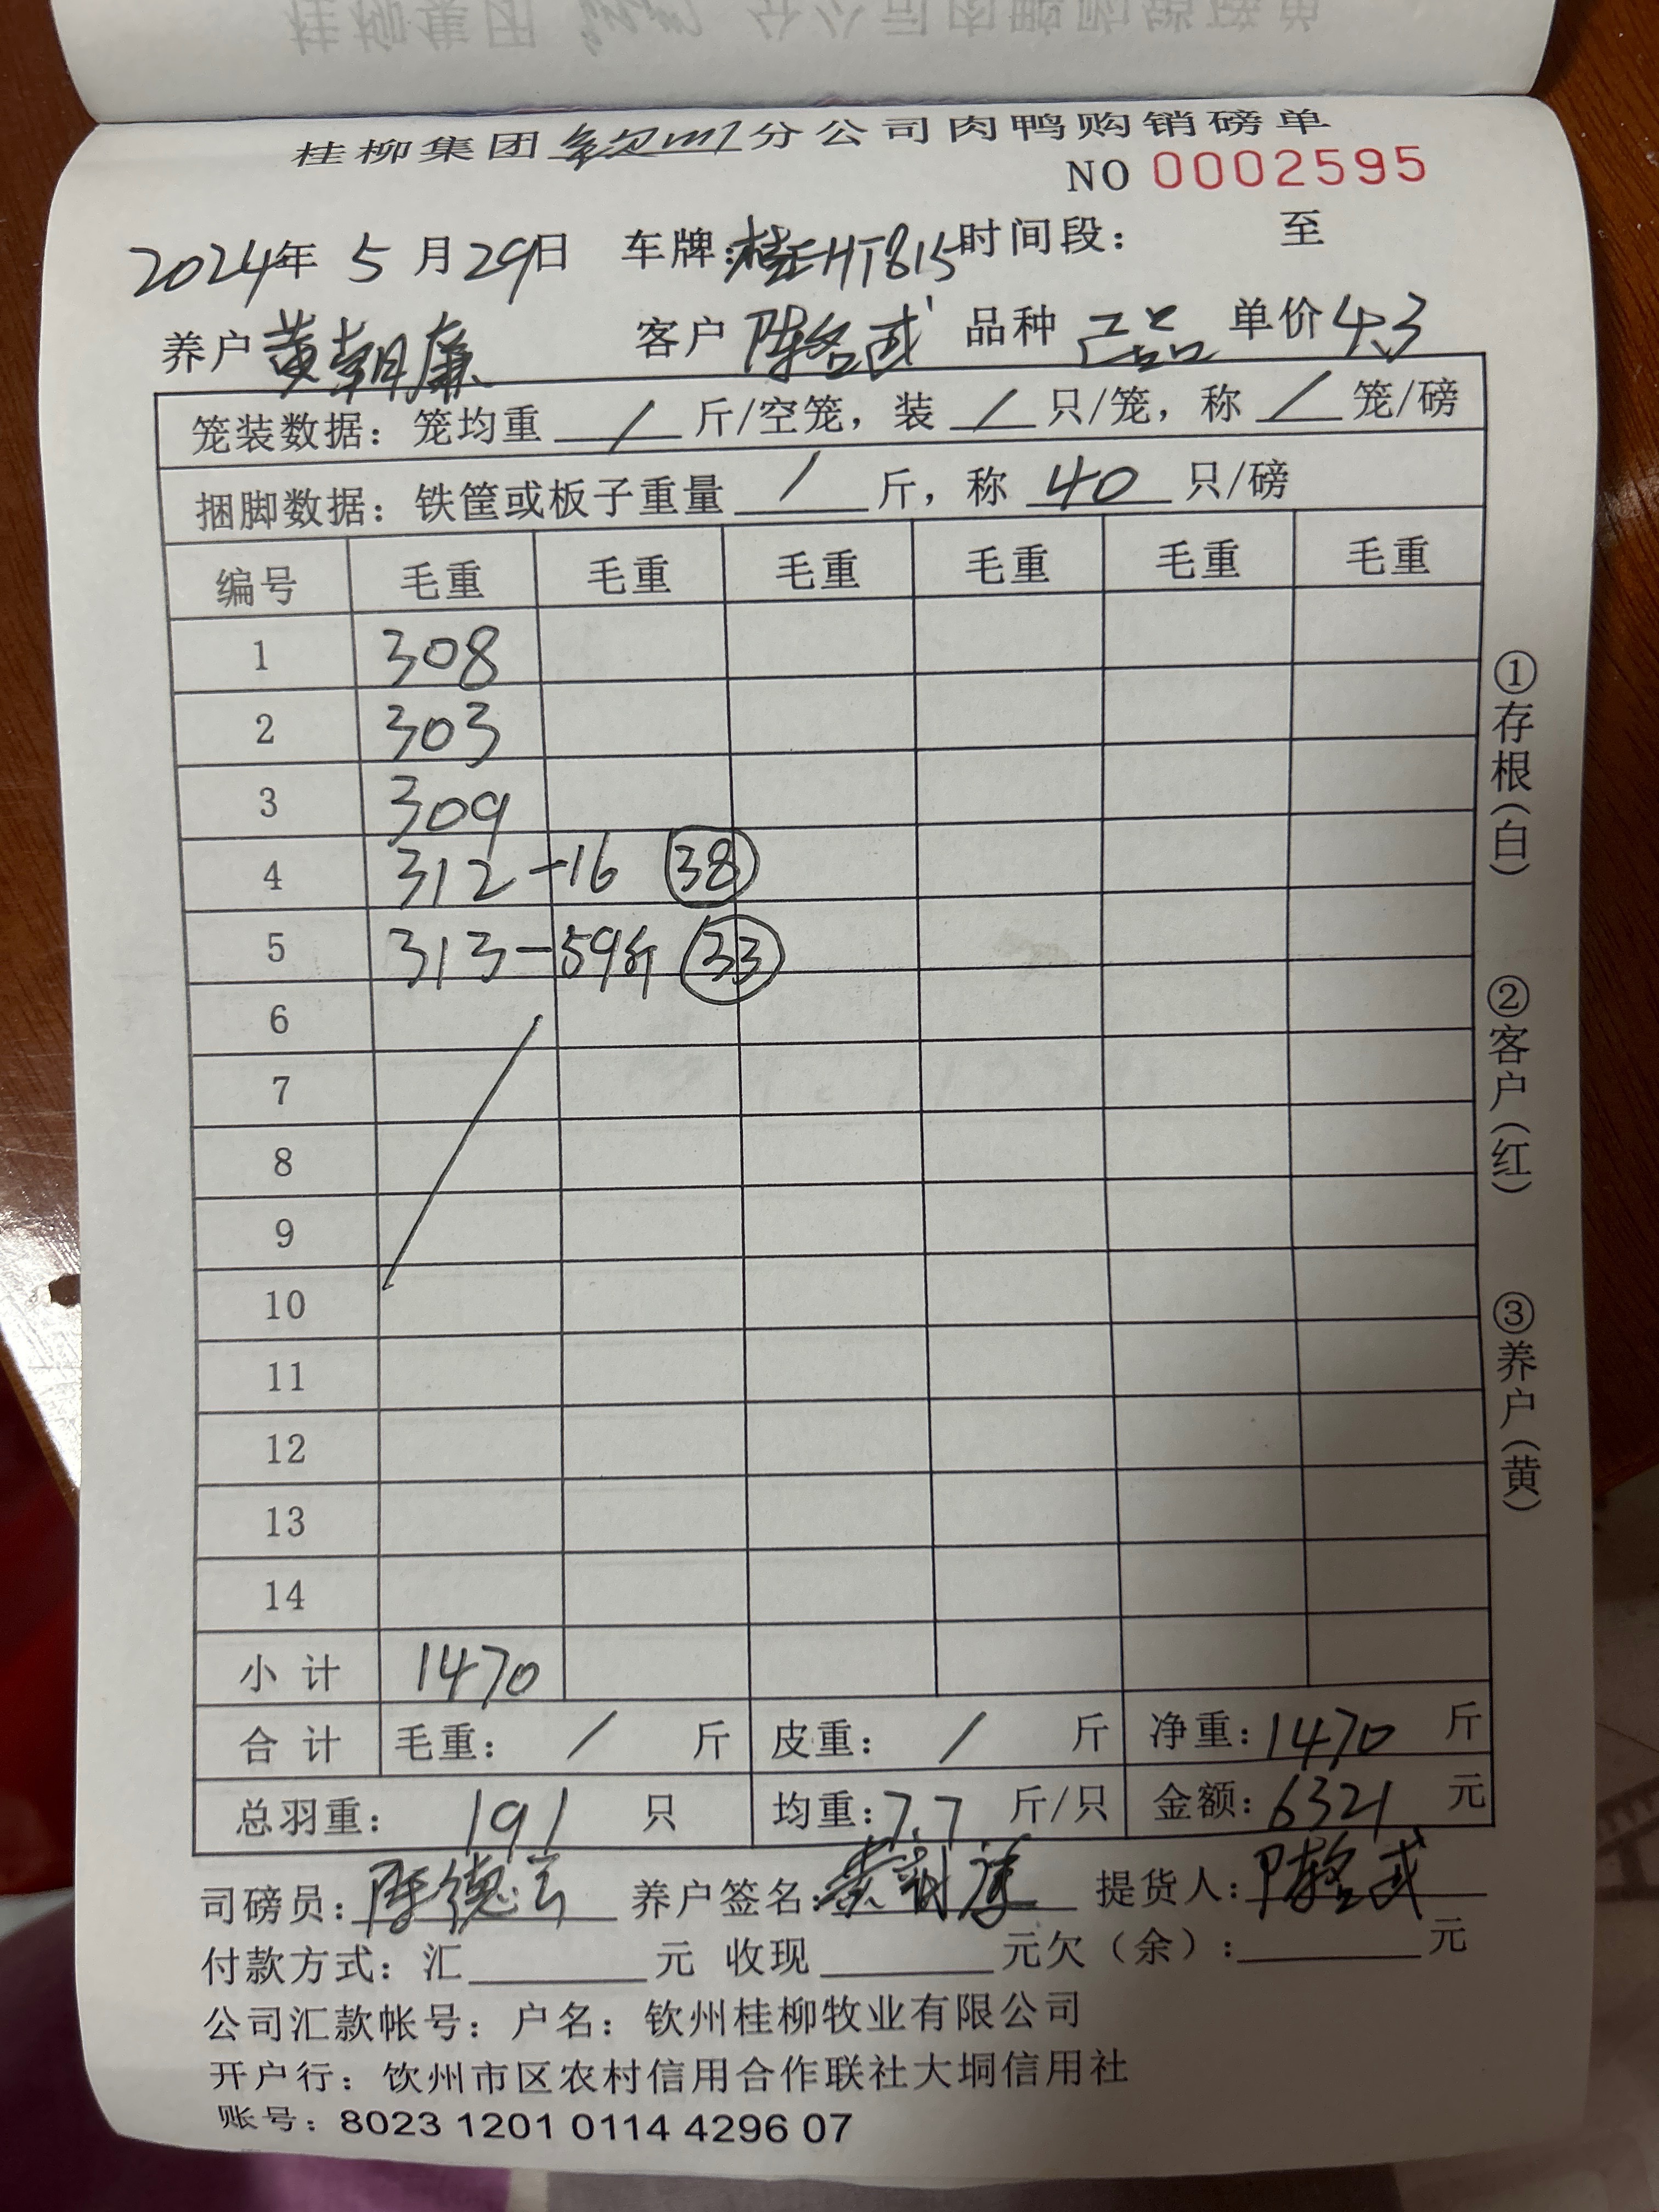 桂柳集团钦州分公司肉鸭购销磅单
NO 0002595
2024年 5 月 29日 车牌:桂EHT815 时间段: 至
养户 黄朝廉 客户 陈铭武 品种 正品 单价 4.3
笼装数据: 笼均重 / 斤/空笼, 装 / 只/笼, 称 / 笼/磅
捆脚数据: 铁筐或板子重量 / 斤, 称 40 只/磅
编号 毛重 毛重 毛重 毛重 毛重 毛重
1 308
2 303
3 309
4 312 -16 38
5 313 -59斤 33
6
7
8
9
10
11
12
13
14
小 计 1470
合 计 毛重: / 斤 皮重: / 斤 净重: 1470 斤
总羽重: 191 只 均重: 7.7 斤/只 金额: 6321 元
司磅员: 陈德云 养户签名: 提货人:
付款方式: 汇 元 收现 元欠(余): 元
公司汇款帐号: 户名: 钦州桂柳牧业有限公司
开户行: 饮州市区农村信用合作联社大垌信用社
账号: 8023 1201 0114 4296 07
①存根(白)
②客户(红)
③养户(黄)